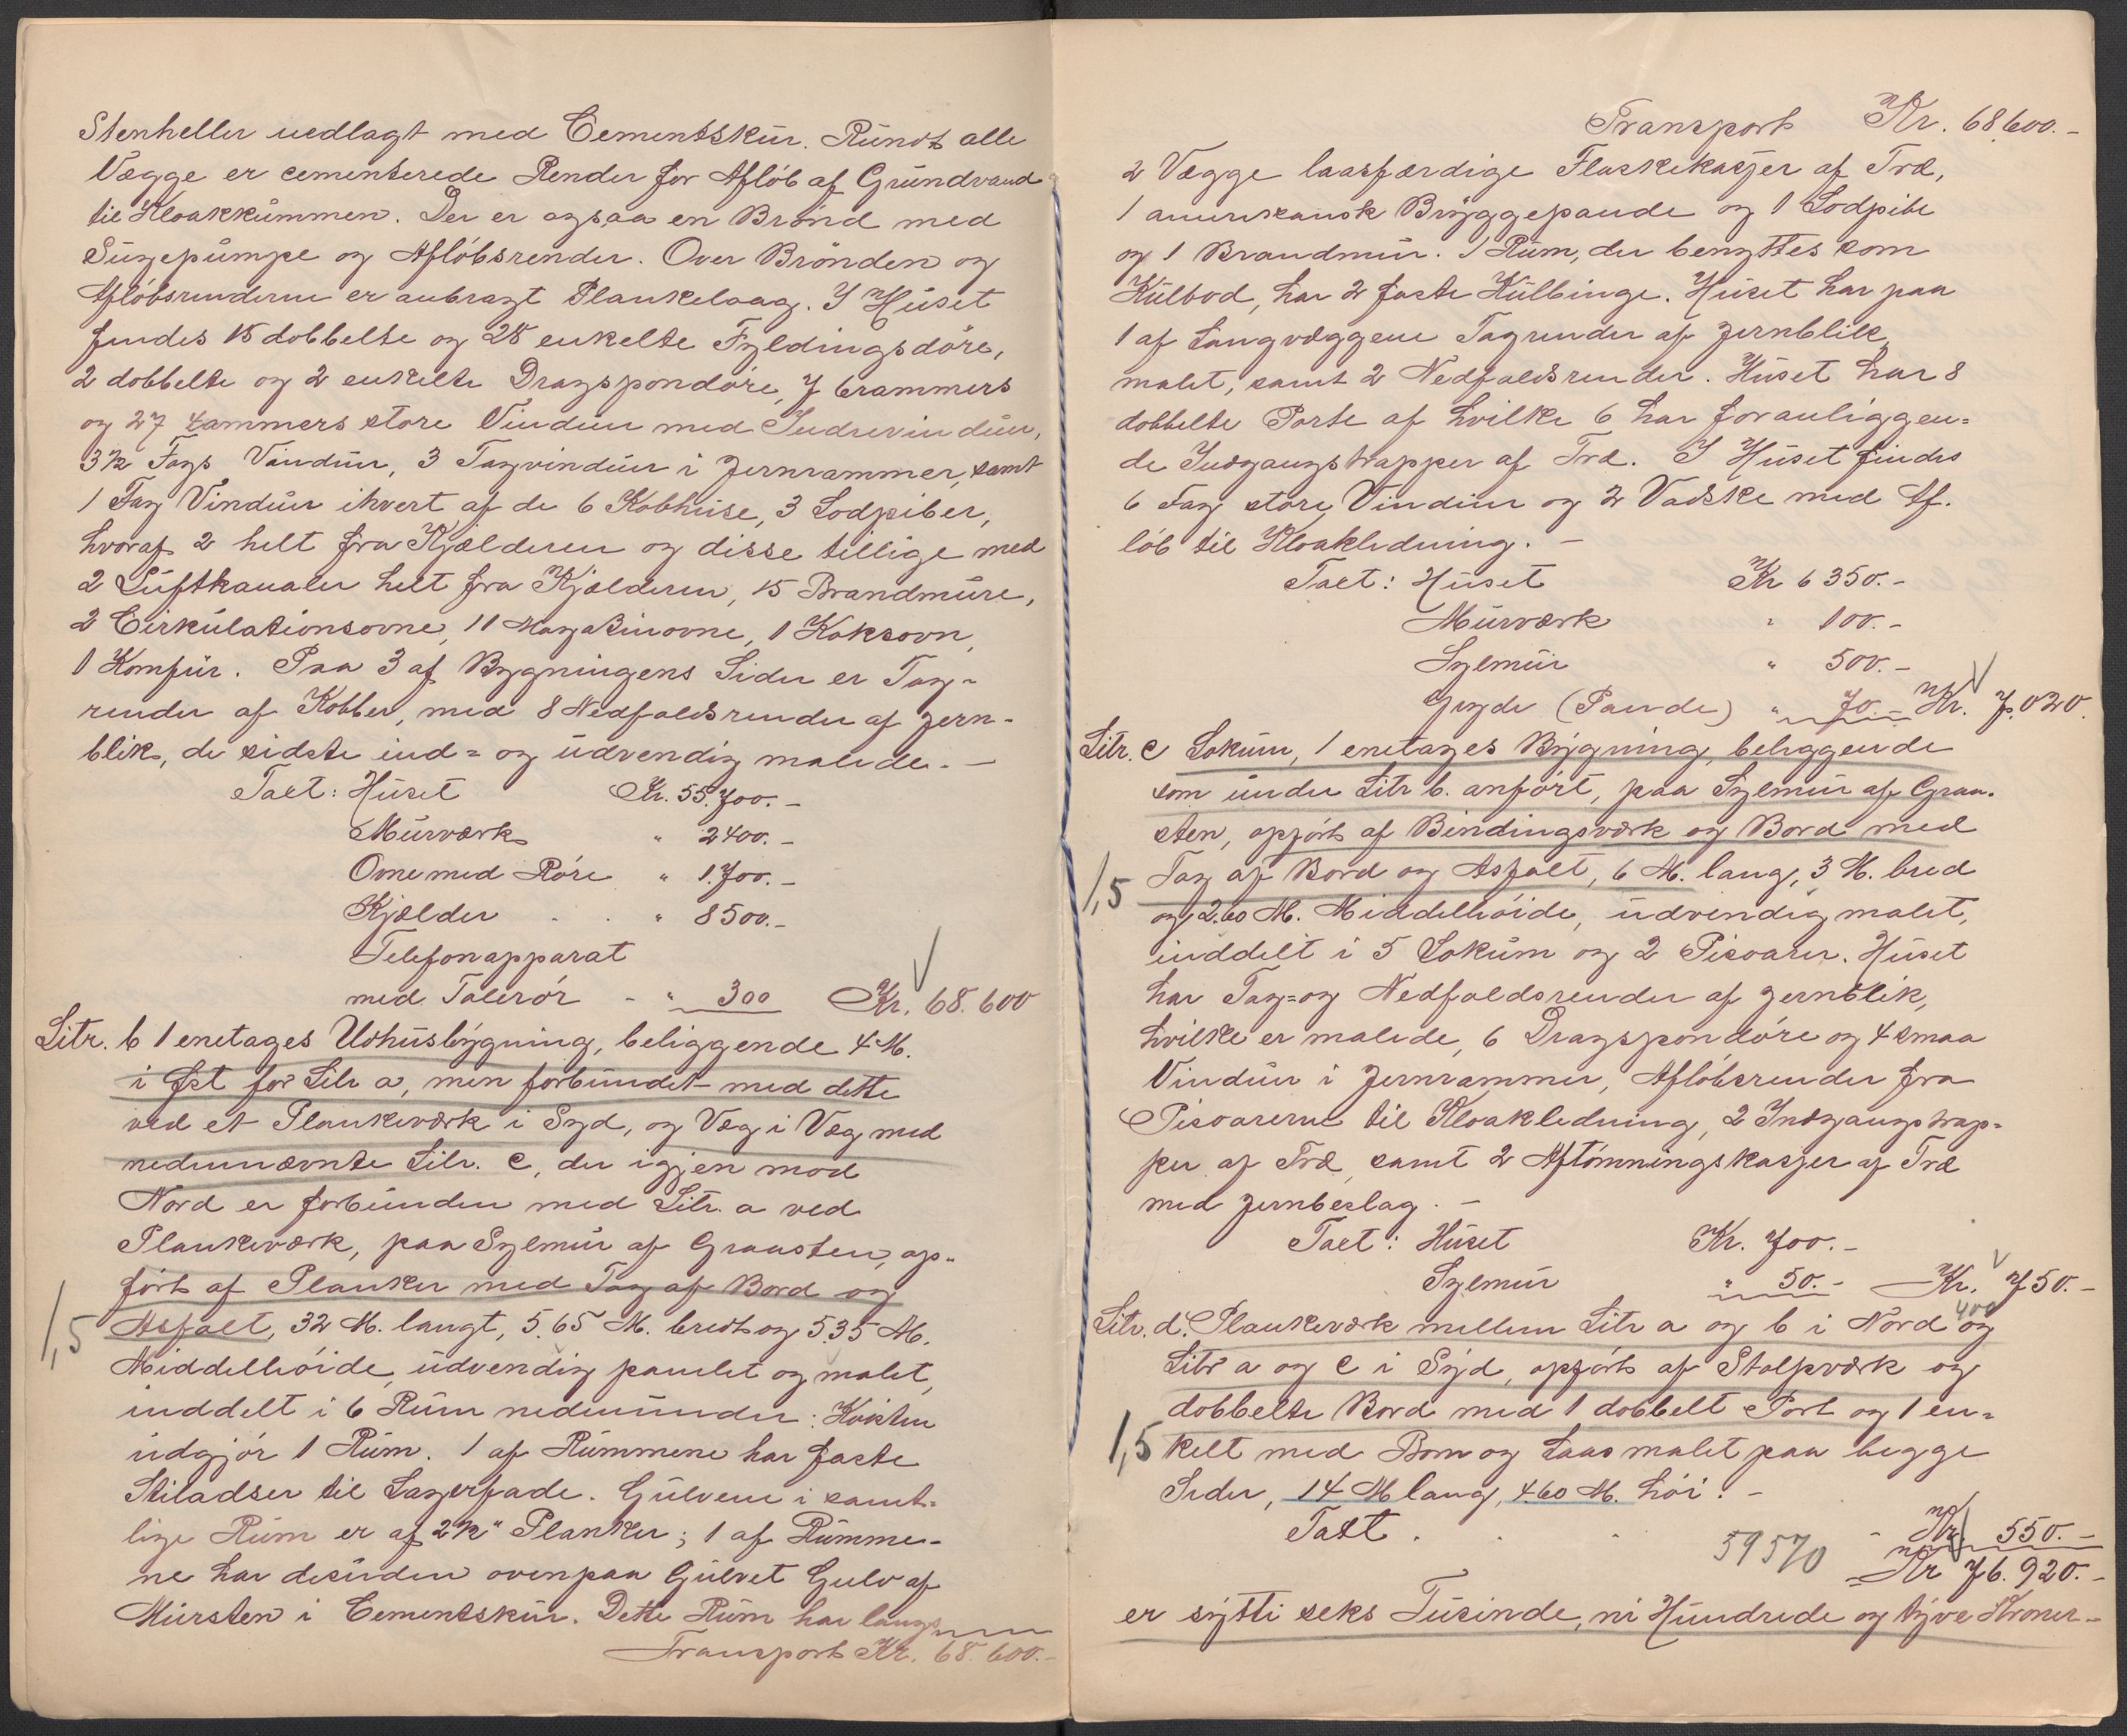 Stenheller nedlagt med Cementskur. Rundt alle
Vægge er cementerede Render for Afløb af Grundvand
til Kloakkummen. Der er ogsaa en Brønd med
Sugepumpe og Afløbsrender. Over Brønden og
Afløbsrenderne er anbragt Plankelaag. I Huset
findes 15 dobbelte og 28 enkelte Fyldingsdøre,
2 dobbelte og 2 enkelte Dragspondøre, 7 6rammers
og 27 4rammers store Vinduer med Indrevinduer,
3½ Fags Vinduer, 3 Tagvinduer i Jernrammer, samt
1 Fag Vinduer ihvert af de 6 Kobhuse, 3 Lodpiber,
hvoraf 2 helt fra Kjælderen og disse tillige med
2 Luftkanaler helt fra Kjælderen, 15 Brandmure,
2 Cirkulationsovne, 11 Magasinovne, 1 Koksovn,
1 Komfur. Paa 3 af Bygningens Sider er Tag-
render af Kobber, med 8 Nedfaldsrender af Jern-
blik, de sidste ind= og udvendig malede. —
Taxt: Huset Kr. 55.700.-
Murværk " 2400.-
Ovne med Røre " 1.700.-
Kjælder . . " 8500.-
Telefonapparat
med Talerør - " 300 Kr. 68.600
Litr. b 1 enetages Udhusbygning, beliggende 4 M.
i Øst for Litr a, men forbundet med dette
ved et Plankeværk i Syd, og Væg i Væg med
nedennævnte Litr. c, der igjen mod
Nord er forbunden med Litr. a ved
Plankeværk, paa Sylmur af Graasten, op-
ført af Planker med Tag af Bord og
1,5 Asfalt, 32 M. langt, 5.65 M. bredt og 5.35 M.
Middelhøide, udvendig panelet og malet,
inddelt i 6 Rum nedenunder: Kvisten
udgjør 1 Rum. 1 af Rummene har faste
Stiladser til Lagerfade. Gulvene i samt-
lige Rum er af 2½" Planker; 1 af Rumme-
ne har desuden ovenpaa Gulvet Gulv af
Mursten i Cementskur. Dette Rum har langs
Transport Kr. 68.600.-
Transport Kr. 68.600.-
2 Vægge laasfærdige Flaskekasjer af Træ,
1 amerikansk Bryggepande og 1 Lodpibe
og 1 Brandmur. 1 Rum, der benyttes som
Kulbod, har 2 faste Kulbinge. Huset har paa
1 af Langvæggene Tagrender af Jernblik,
malet, samt 2 Nedfaldsrender. Huset har 8
dobbelte Porte af hvilke 6 har foranliggen-
de Indgangstrapper af Træ. I Huset findes
6 Fag store Vinduer og 2 Vadske med Af-
løb til Kloakledning. —
Taxt: Huset Kr 6350.-
Murværk " 100.-
Sylmur " 500.-
Gryde (Pande) " 70.- Kr. 7.020.
Litr. c Lokum, 1 enetages Bygning, beliggende
som under Litr b. anført, paa Sylmur af Graa-
sten, opført af Bindingsværk og Bord med
Tag af Bord og Asfalt, 6 M. lang, 3 M. bred
1,5 og 2.60 M. Middelhøide, udvendig malet,
inddelt i 5 Lokum og 2 Pisoarer. Huset
har Tag= og Nedfaldsrender af Jernblik,
hvilke er malede, 6 Dragspondøre og 4 smaa
Vinduer i Jernrammer, Afløbsrender fra
Pisoarerne til Kloakledning, 2 Indgangstrap-
per af Træ, samt 2 Aftømningskasjer af Træ
med Jernbeslag. —
Taxt: Huset Kr. 700.-
Sylmur " 50.- Kr. 750.-
400
Litr. d. Plankeværk mellem Litr a og b i Nord og
Litr a og c i Syd, opført af Stolpværk og
dobbelte Bord med 1 dobbelt Port og 1 en-
1,5 kelt med Bom og Laas malet paa begge
Sider, 14 M lang, 4.60 M. høi. —
Taxt . . . - Kr. 550.-
59570 Kr 76.920.-
er sytti seks Tusinde, ni Hundrede og tyve Kroner -